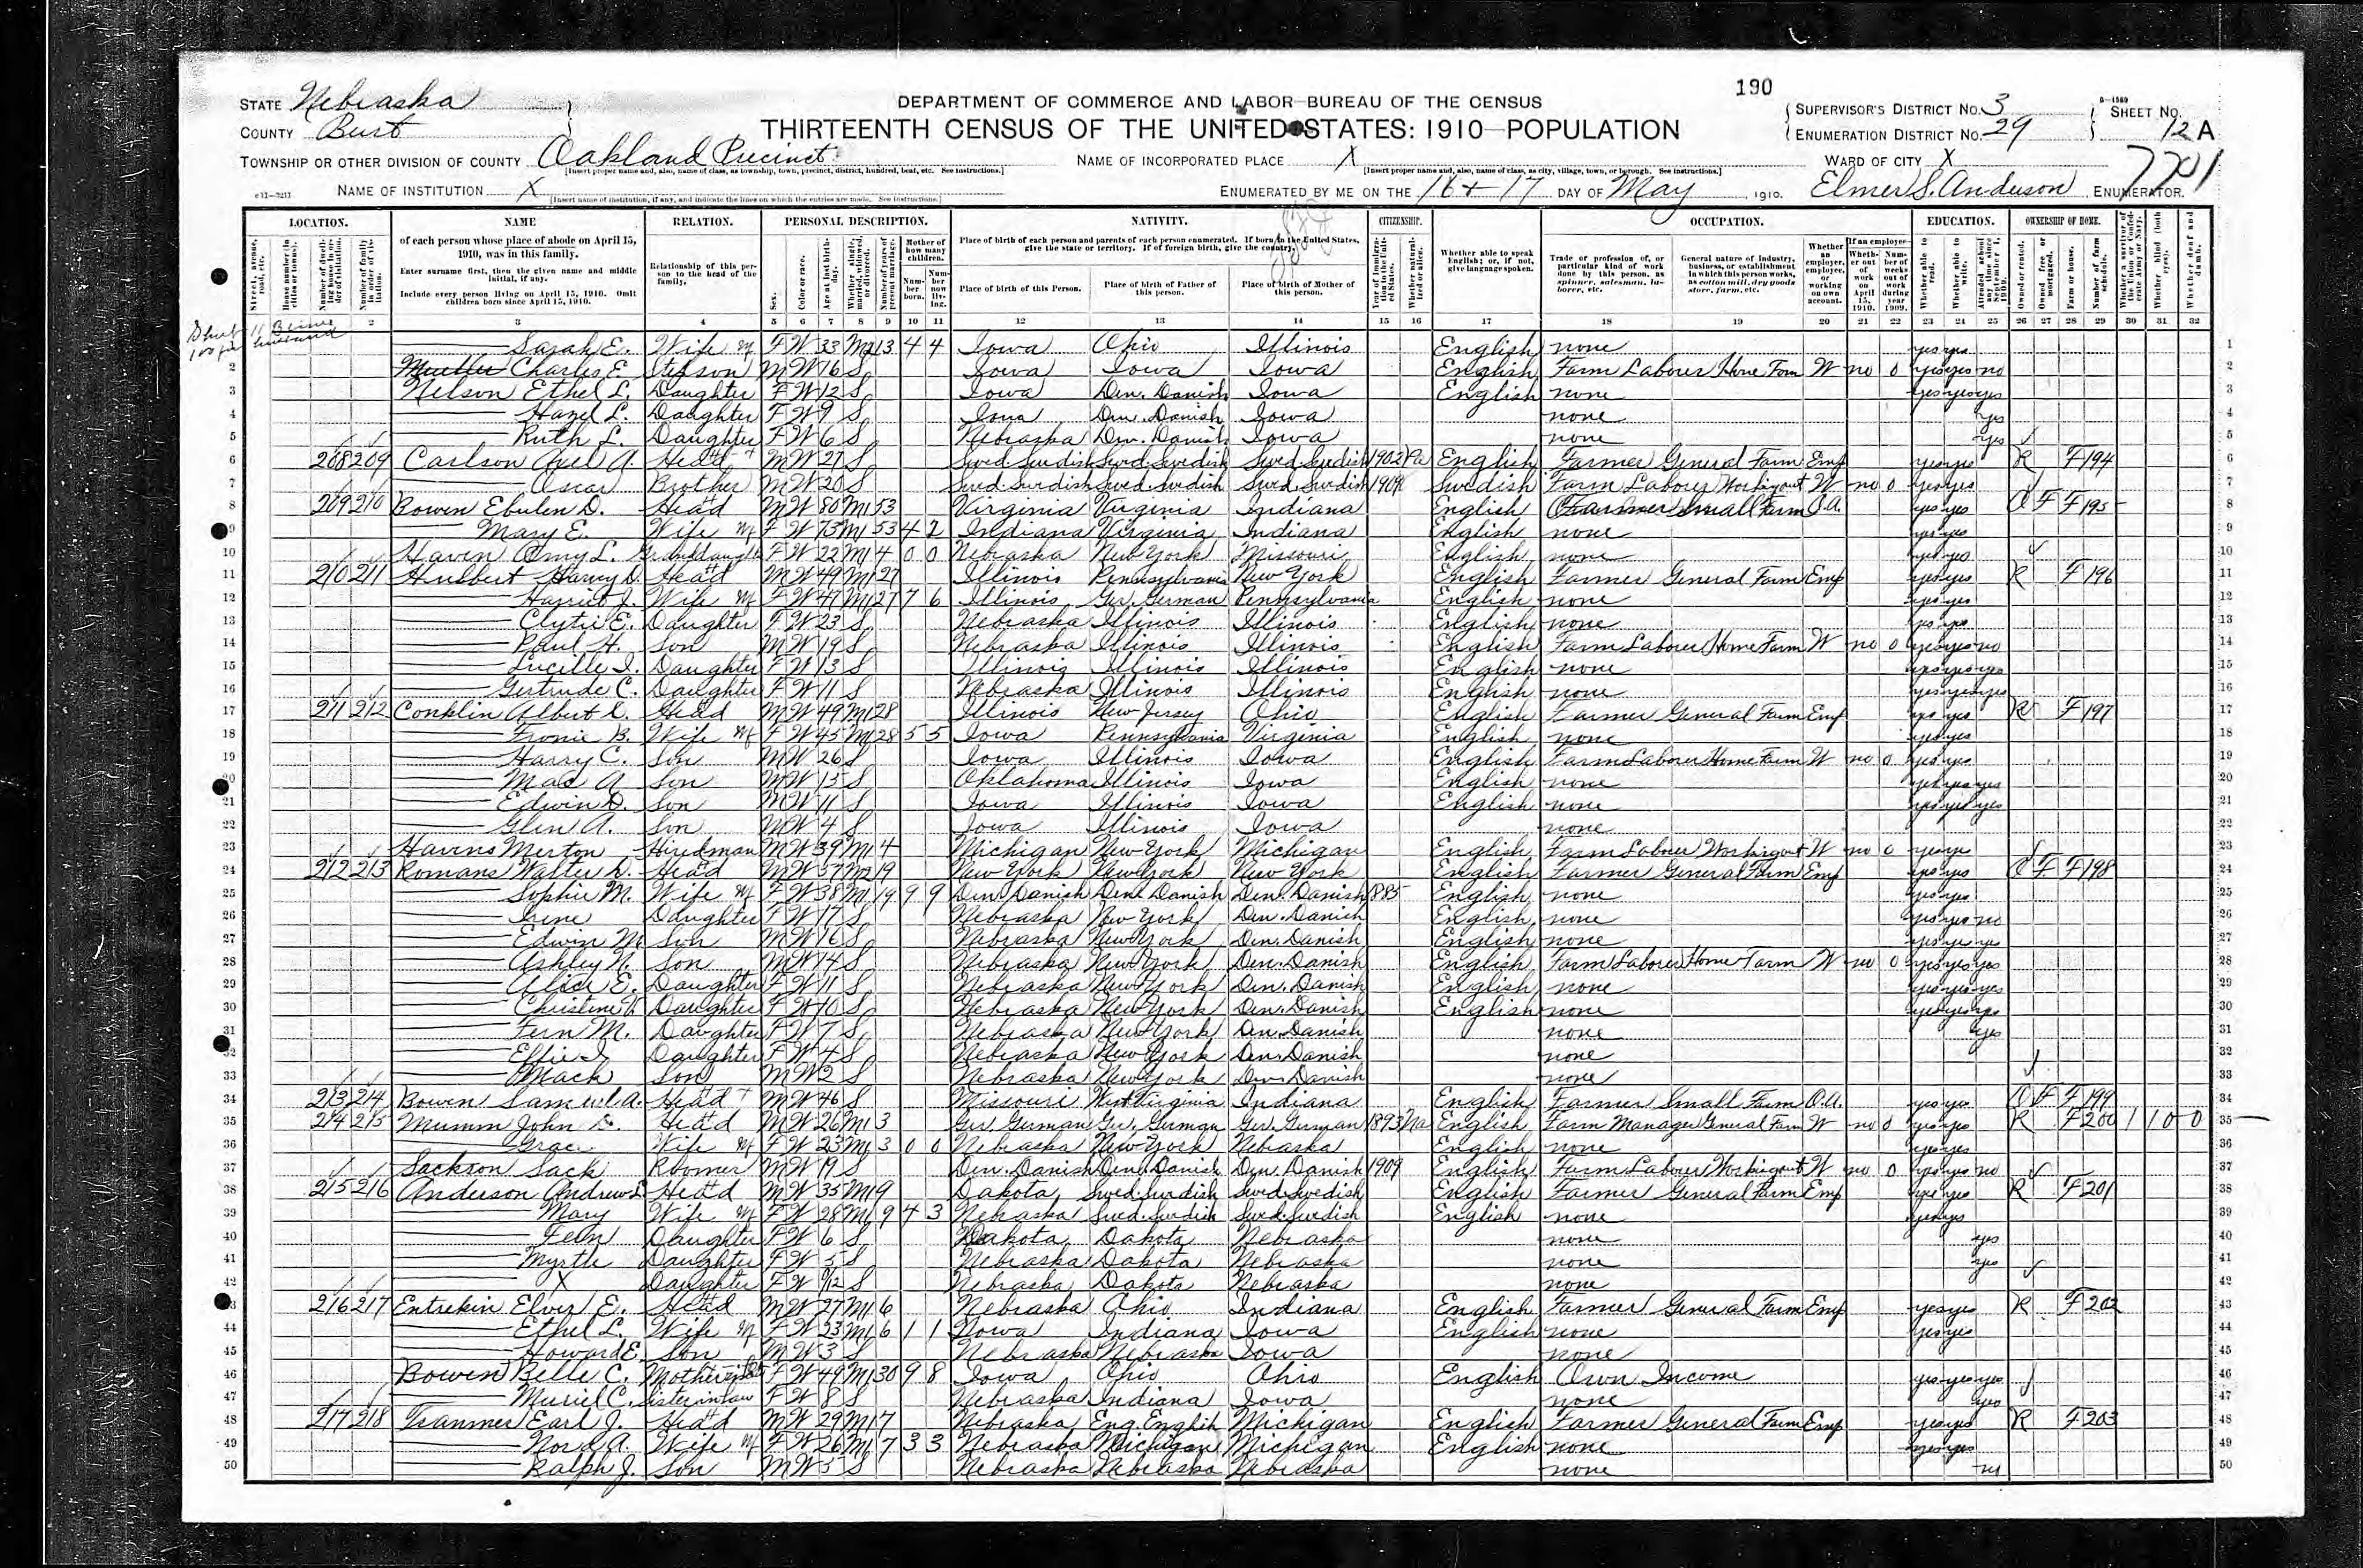 190
STATE Nebraska
COUNTY Burt
DEPARTMENT OF COMMERCE AND LABOR—BUREAU OF THE CENSUS
THIRTEENTH CENSUS OF THE UNITED STATES: 1910—POPULATION
SUPERVISOR'S DISTRICT NO. 3
ENUMERATION DISTRICT NO. 29
SHEET NO. 12 A
TOWNSHIP OR OTHER DIVISION OF COUNTY Oakland Precinct
NAME OF INCORPORATED PLACE X
WARD OF CITY X
7701
NAME OF INSTITUTION X
ENUMERATED BY ME ON THE 16 + 17 DAY OF May, 1910. Elmer S. Anderson, ENUMERATOR.
LOCATION. NAME RELATION. PERSONAL DESCRIPTION. NATIVITY. CITIZENSHIP. OCCUPATION. EDUCATION. OWNERSHIP OF HOME.
1 Sarah E. Wife F W 33 M2 13 4 4 Iowa Ohio Illinois English none yes yes
2 Charles E. Stepson M W 16 S Iowa Iowa Iowa English Farm Laborer Home Farm W no 0 yes yes no
3 Nelson Ethel L. Daughter F W 12 S Iowa Den. Danish Iowa English none yes yes yes
4 Hazel L. Daughter F W 9 S Iowa Den. Danish Iowa none yes
5 Ruth L. Daughter F W 6 S Nebraska Den. Danish Iowa none yes
6 208 209 Carlson Axel A. Head M W 27 S Swed. Swedish Swed. Swedish Swed. Swedish 1902 Pa English Farmer General Farm Emp yes yes R F 194
7 Oscar Brother M W 20 S Swed. Swedish Swed. Swedish Swed. Swedish 1909 Swedish Farm Laborer Working out W no 0 yes yes
8 209 210 Bowen Ebulen D. Head M W 80 M1 53 Virginia Virginia Indiana English Farmer Small Farm O.A. yes yes O F F 195
9 Mary E. Wife F W 73 M1 53 4 2 Indiana Virginia Indiana English none yes yes
10 Haven Amy L. Granddaughter F W 22 M1 4 0 0 Nebraska New York Missouri English none yes yes
11 210 211 Hulbert Harry D. Head M W 49 M1 27 Illinois Pennsylvania New York English Farmer General Farm Emp yes yes R F 196
12 Harriet J. Wife F W 47 M1 27 7 6 Illinois Ger. German Pennsylvania English none yes yes
13 Clytie E. Daughter F W 23 S Nebraska Illinois Illinois English none yes yes
14 Paul H. Son M W 19 S Nebraska Illinois Illinois English Farm Laborer Home Farm W no 0 yes yes no
15 Lucille I. Daughter F W 13 S Illinois Illinois Illinois English none yes yes yes
16 Gertrude C. Daughter F W 11 S Nebraska Illinois Illinois English none yes yes yes
17 211 212 Conklin Albert D. Head M W 49 M1 28 Illinois New Jersey Ohio English Farmer General Farm Emp yes yes R F 197
18 Fronie B. Wife F W 45 M1 28 5 5 Iowa Pennsylvania Virginia English none yes yes
19 Harry C. Son M W 26 S Iowa Illinois Iowa English Farm Laborer Home Farm W no 0 yes yes
20 Mad A. Son M W 15 S Oklahoma Illinois Iowa English none yes yes yes
21 Edwin D. Son M W 11 S Iowa Illinois Iowa English none yes yes yes
22 Glen A. Son M W 4 S Iowa Illinois Iowa none
23 Havens Merton Hiredman M W 39 M1 4 Michigan New York Michigan English Farm Laborer Working out W no 0 yes yes
24 212 213 Romans Walter D. Head M W 57 M2 19 New York New York New York English Farmer General Farm Emp yes yes O F F 198
25 Sophie M. Wife F W 38 M1 19 9 9 Den. Danish Den. Danish Den. Danish 1885 English none yes yes
26 Irene Daughter F W 17 S Nebraska New York Den. Danish English none yes yes no
27 Edwin M. Son M W 16 S Nebraska New York Den. Danish English none yes yes yes
28 Ashley N. Son M W 14 S Nebraska New York Den. Danish English Farm Laborer Home Farm W no 0 yes yes yes
29 Alice E. Daughter F W 11 S Nebraska New York Den. Danish English none yes yes yes
30 Christine Daughter F W 10 S Nebraska New York Den. Danish English none yes yes yes
31 Fern M. Daughter F W 7 S Nebraska New York Den. Danish none yes
32 Effie I. Daughter F W 4 S Nebraska New York Den. Danish none
33 Mack Son M W 2 S Nebraska New York Den. Danish none
34 213 214 Bowen Samuel A. Head M W 46 S Missouri West Virginia Indiana English Farmer Small Farm O.A. yes yes O F F 199
35 214 215 Mumm John Head M W 26 M1 3 Ger. German Ger. German Ger. German 1893 Na English Farm Manager General Farm W no 0 yes yes R F 200 1 1 0 0
36 Grace Wife F W 23 M1 3 0 0 Nebraska New York Nebraska English none yes yes
37 Jackson Jack Roomer M W 19 S Den. Danish Den. Danish Den. Danish 1909 English Farm Laborer Working out W no 0 yes yes no
38 215 216 Anderson Andrew L. Head M W 35 M1 9 Dakota Swed. Swedish Swed. Swedish English Farmer General Farm Emp yes yes R F 201
39 Mary Wife F W 28 M1 9 4 3 Nebraska Swed. Swedish Swed. Swedish English none yes yes
40 Fern Daughter F W 6 S Dakota Dakota Nebraska none yes
41 Myrtle Daughter F W 5 S Nebraska Dakota Nebraska none yes
42 X Daughter F W S Nebraska Dakota Nebraska none
43 216 217 Entrekin Elver E. Head M W 27 M1 6 Nebraska Ohio Indiana English Farmer General Farm Emp yes yes R F 202
44 Ethel L. Wife F W 23 M1 6 1 1 Iowa Indiana Iowa English none yes yes
45 Howard E. Son M W 3 S Nebraska Nebraska Iowa none
46 Bowen Belle C. Mother in law F W 49 M1 30 9 8 Iowa Ohio Ohio English Own Income yes yes yes
47 Muriel C. Sister in law F W 8 S Nebraska Indiana Iowa none yes
48 217 218 Tranmer Earl J. Head M W 29 M1 7 Nebraska Eng. English Michigan English Farmer General Farm Emp yes yes R F 203
49 Nora A. Wife F W 26 M1 7 3 3 Nebraska Michigan Michigan English none yes yes
50 Ralph J. Son M W 5 S Nebraska Nebraska Nebraska none no